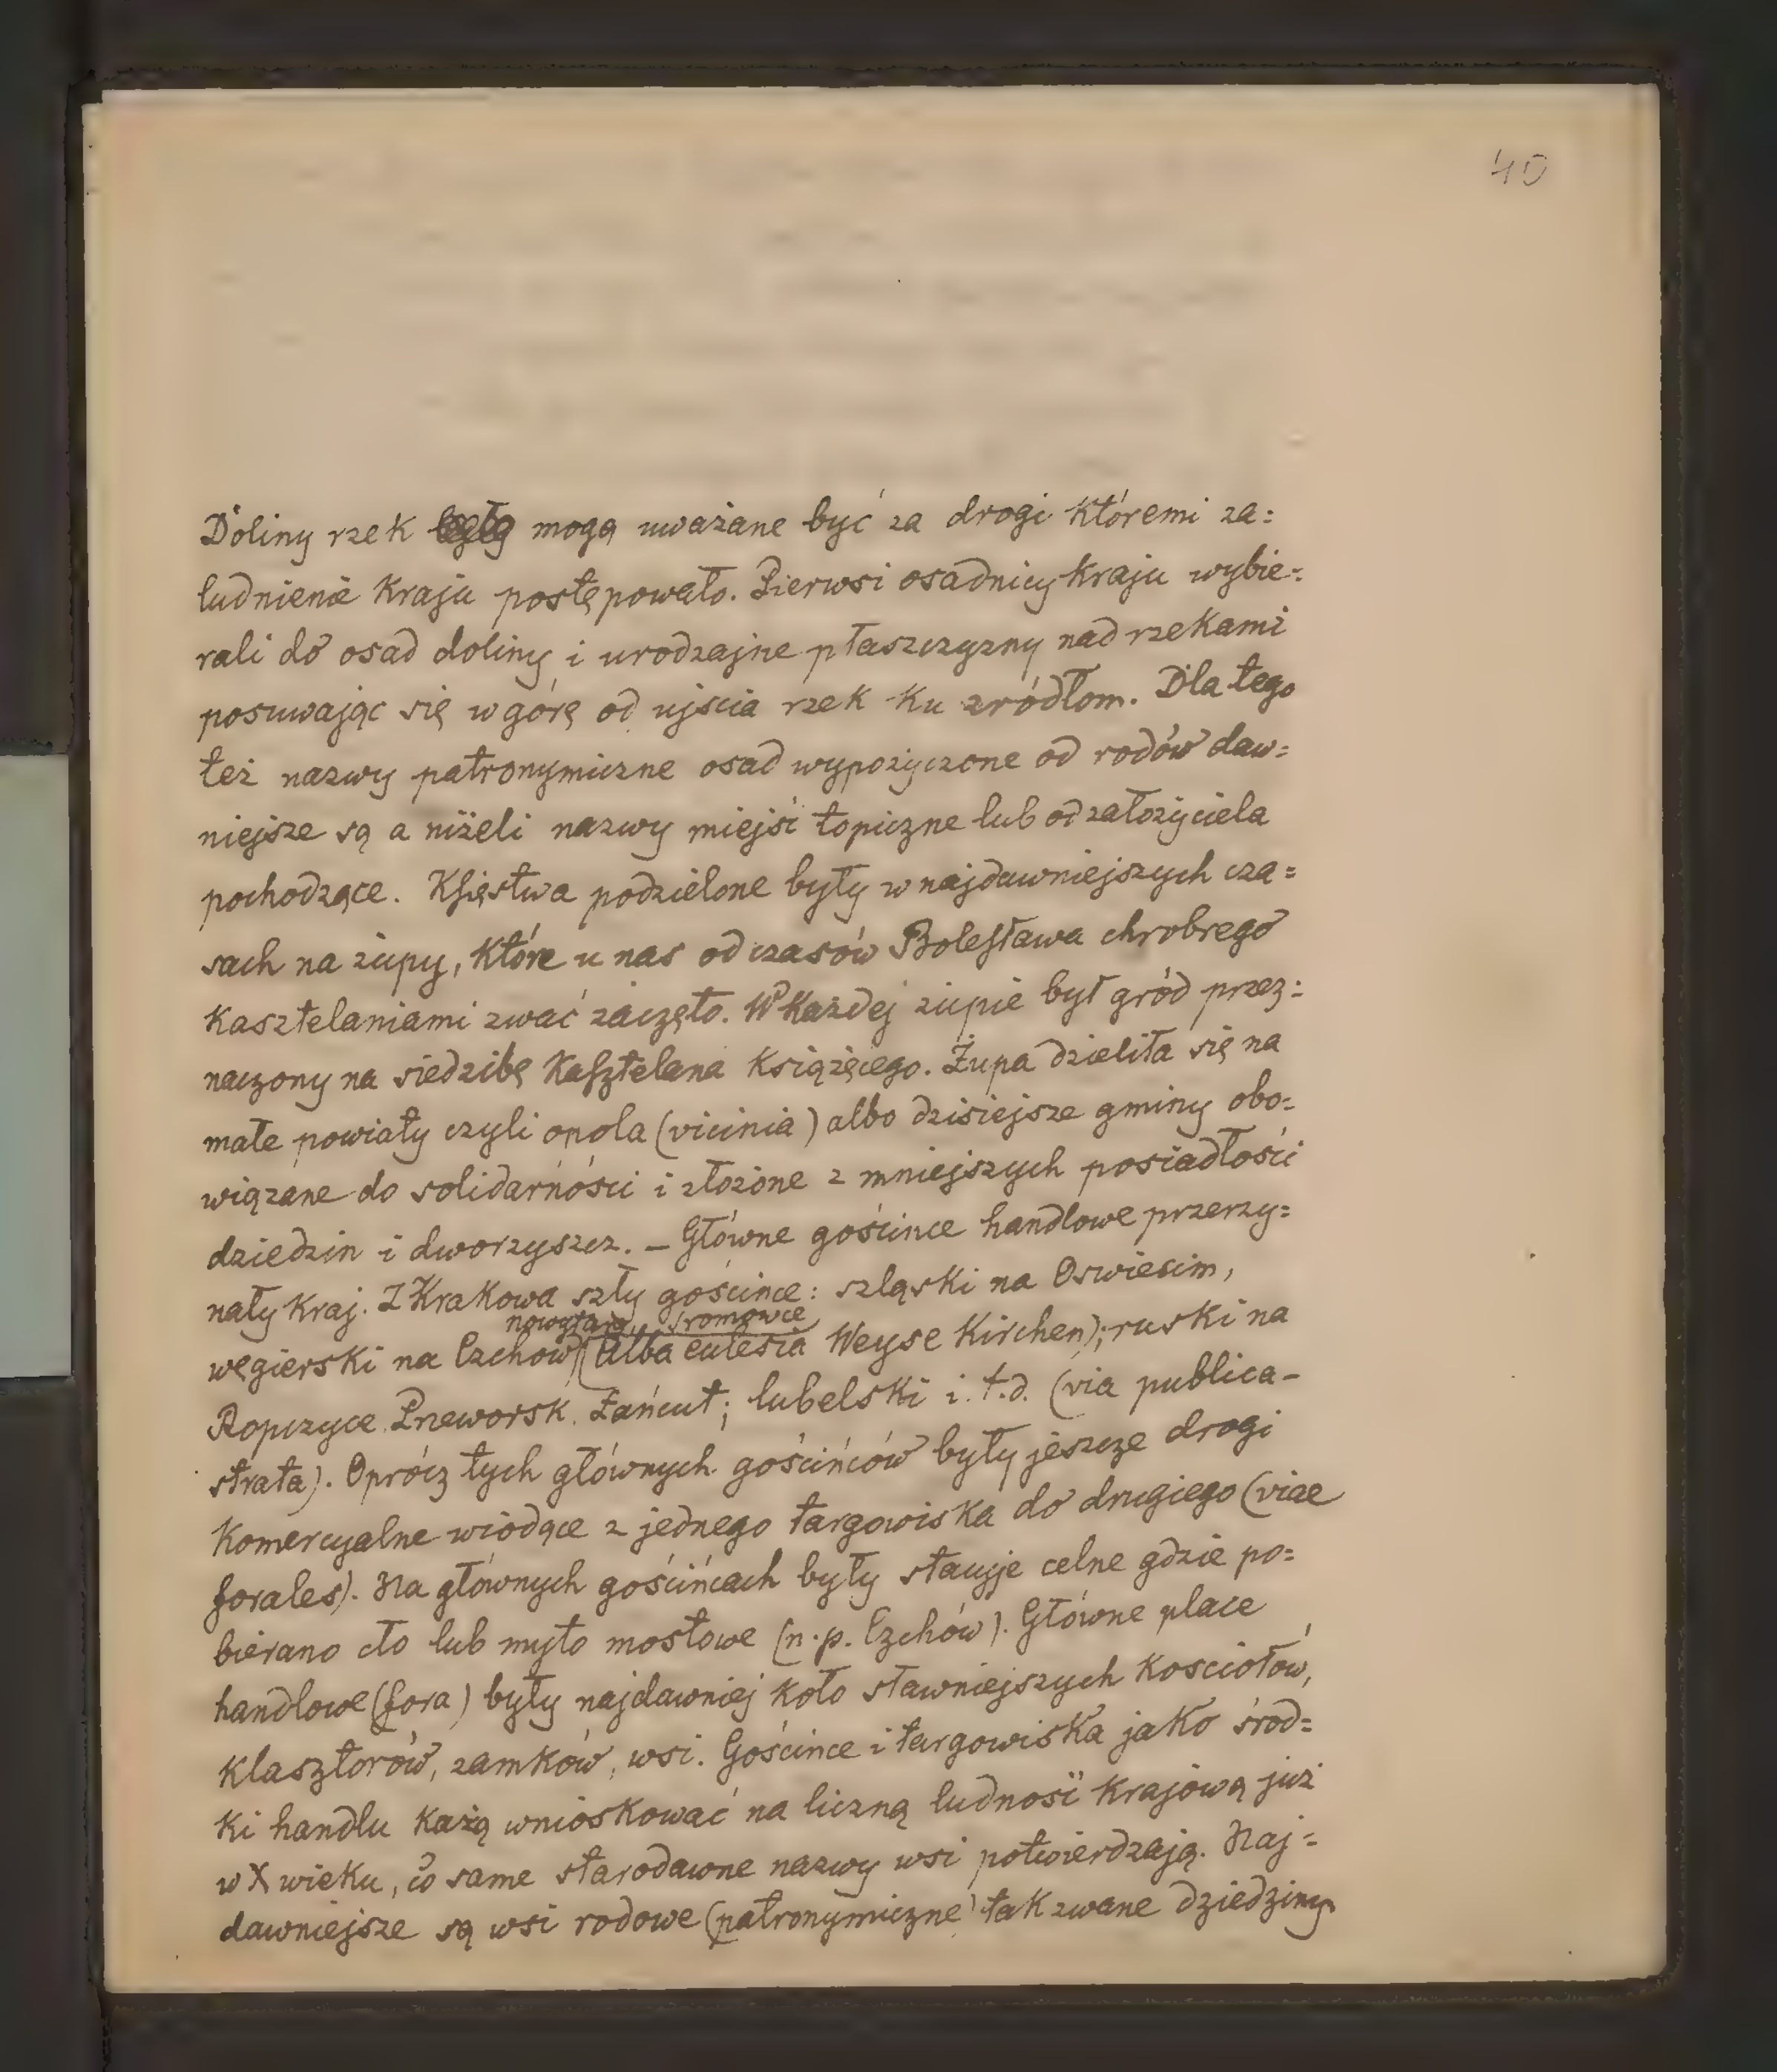 40
Doliny rzek mogą uważane być za drogi któremi za=
ludnienie kraju postępowało. Pierwsi osadnicy kraju wybie=
rali do osad doliny i urodzajne płaszczyzny nad rzekami
posuwając się w górę od ujścia rzek ku zródłom. Dla tego
też nazwy patronymiczne osad wypożyczone od rodów daw=
niejsze są a niżeli nazwy miejść topiczne lub od założyciela
pochodzące. Księstwa podzielone były w najdawniejszych cza=
sach na żupy, które u nas od czasów Bolesława chrobrego
kasztelaniami zwać zaczęto. W każdej żupie był gród przez=
naczony na siedzibę kasztelana książęcego. Żupa dzieliła się na
małe powiaty czyli opola (vicinia) albo dzisiejsze gminy obo=
wiązane do solidarności i złożone z mniejszych posiadłości
dziedzin i dworzyszcz. – Główne gościńce handlowe przerzy=
nały kraj. Z Krakowa szły goścince: szląski na Oswiecim,
nowytarg, Sromowce
węgierski na Czchow (Alba eclesia Weyse Kirchen); ruski na
Ropczyce Przeworsk, Łańcut; lubelski i.t.d. (via publica–
strata). Oprócz tych głównych gościńców były jeszcze drogi
komercyalne wiodące z jednego targowiska do drugiego (viae
forales). Na głównych gościńcach były stacyje celne gdzie po=
bierano cło lub myto mostowe (n.p. Czchów). Główne place
handlowe (fora) były najdawniej koło sławniejszych kosciołów,
klasztorów, zamków, wsi. Goścince i targowiska jako środ=
ki handlu każą wnioskować na liczną ludność krajową już
w X wieku, co same starodawne nazwy wsi potwierdzają. Naj=
dawniejsze są wsi rodowe (patronymiczne) tak zwane dziedziny